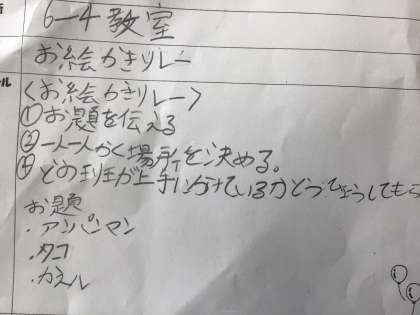 所
6-4教室
お絵かきリレー
ール
<お絵かきリレー>
①お題を伝える
②一人一人かく場所を決める。
④どの班が上手にかけているかとうひょうしてもら
お題
・アンパンマン
・タコ
・カエル